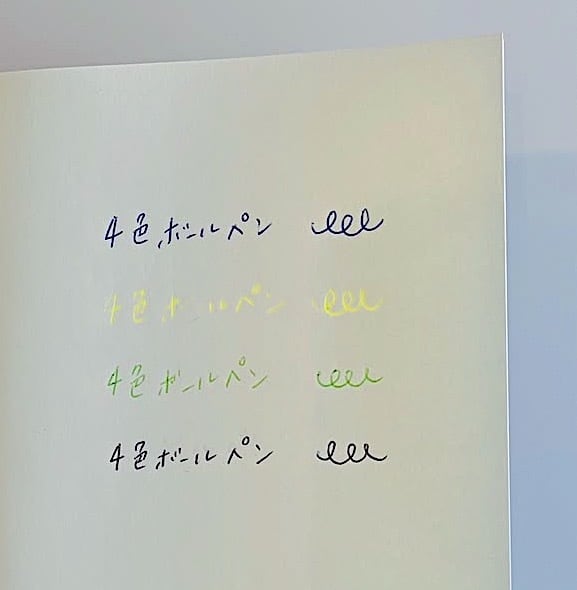 4色ボールペン
4色ボールペン
4色ボールペン
4色ボールペン